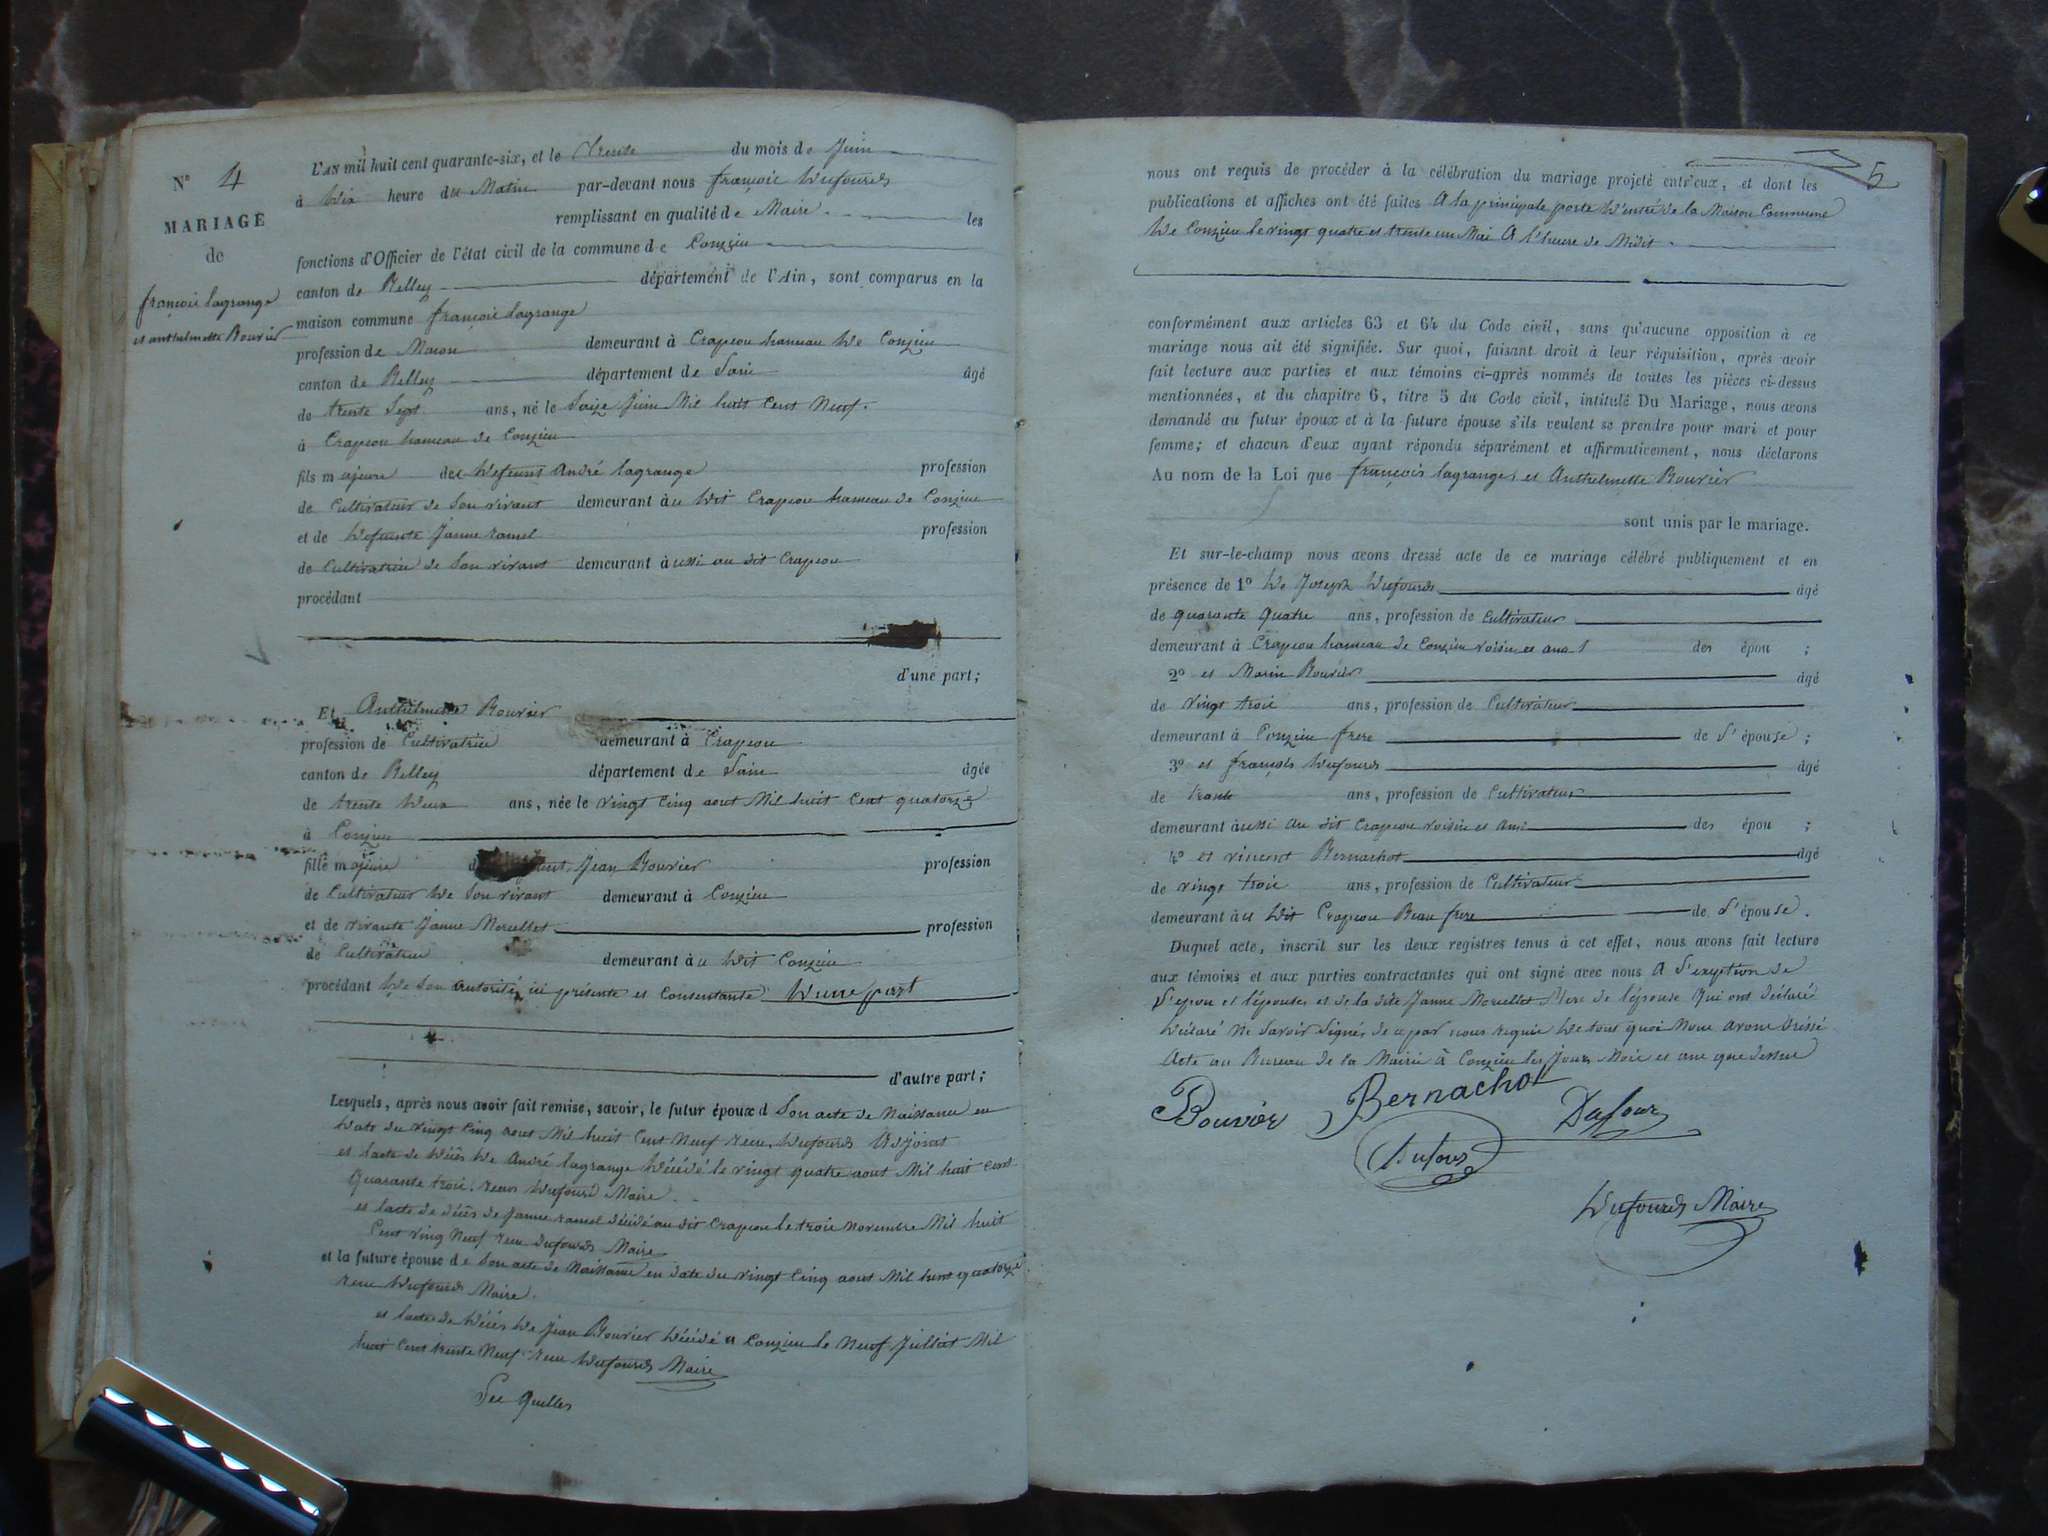 N° 4
MARIAGE
de
françois lagrange
et anthelmette Bouvier
L'AN mil huit cent quarante-six, et le trente du mois de Juin
à Dix heure du Matin par-devant nous françois Dufourd
remplissant en qualité de Maire. les
fonctions d'Officier de l'état civil de la commune de Conzieu
canton de Belley département de l'Ain, sont comparus en la
maison commune françois lagrange
profession de Macon demeurant à Crapeou hameau De Conzieu
canton de Belley département de Lain âgé
de trente Sept. ans, né le Mil huit Cent Neuf.
à Crapeou hameau de Conzieu
fils majeure de Defunt André lagrange profession
de Cultivateur de Son vivant demeurant àu Dit Crapeou hameau de Conzieu
et de Defuente Janne ramel profession
de Cultivatrice de Son vivant demeurant àussi au dit Crapeou
procédant
d'une part;
Et Anthelmette Bouvier
profession de Cultivatrice demeurant à Crapeou
canton de Belley département de Lain âgée
de trente Deux ans, née le vingt Cinq aout Mil huit Cent quatorze
à Conzieu
fille majeure Jean Bouvier profession
de Cultivateur De Son vivant demeurant à Conzieu
et de vivante Janne Marcellet profession
de Cultivatrice demeurant àu Dit Conzieu
procédant De Son autorité, ici présente et Consentante D'une part
d'autre part;
Lesquels, après nous avoir fait remise, savoir, le futur époux d Son acte de Naissance en
Date du vingt Cinq aout Mil huit Cent Neuf recu Dufourd Adjoint
et lacte de Décès De André lagrange Décédé le vingt quatre aout Mil huit Cent
Quarante trois. recu Dufourd Maire.
et lacte de décès de Janne ramel décédé au dit Crapeou le trois novembre Mil huit
Cent ving Neuf recu dufourd Maire
et la future épouse de Son acte de Naissance en date du vingt Cinq aout Mil huit quatorze
recu Dufourd Maire.
et lacte de Décès De Jean Bouvier Décédé a Conzieu le Neuf Juillet Mil
huit Cent trente Neuf recu Dufourd Maire
Les Quelles
5
nous ont requis de procéder à la célébration du mariage projeté entr'eux, et dont les
publications et affiches ont été faites A la principale porte D'entré de la Maison Commune
De Conzieu le vingt quatre et trente un Mai A l'heure de Midis.
conformément aux articles 63 et 64 du Code civil, sans qu'aucune opposition à ce
mariage nous ait été signifiée. Sur quoi, faisant droit à leur réquisition, après avoir
fait lecture aux parties et aux témoins ci-après nommés de toutes les pièces ci-dessus
mentionnées, et du chapitre 6, titre 5 du Code civil, intitulé Du Mariage, nous avons
demandé au futur époux et à la future épouse s'ils veulent se prendre pour mari et pour
femme; et chacun d'eux ayant répondu séparément et affirmativement, nous déclarons
Au nom de la Loi que françois lagrange et Anthelmette Bouvier
sont unis par le mariage.
Et sur-le-champ nous avons dressé acte de ce mariage célébré publiquement et en
présence de 1° De Joseph Dufourd âgé
de quarante quatre ans, profession de Cultivateur
demeurant à Crapeou hameau de Conzieu voisin et ami des épou ;
2° et Marin Bouvier âgé
de vingt trois ans, profession de Cultivateur
demeurant à Conzieu frere de L'épouse ;
3° et françois Dufourd âgé
de trante ans, profession de Cultivateur
demeurant àussi au dit Crapeou voisin et ami des épou ;
4° et vincent Bernachot âgé
de vingt trois ans, profession de Cultivateur
demeurant àu Dit Crapeou Beau frere de L'épouse.
Duquel acte, inscrit sur les deux registres tenus à cet effet, nous avons fait lecture
aux témoins et aux parties contractantes qui ont signé avec nous A L'exeption de
L'epou et l'épouse et de la dite Janne Marcellet Mere de lépouse Qui ont déclaré
Déclaré ne Savoir Signés de ce par nous requis De tout quoi Nous avons dréssé
Acte au Bureau de la Mairie à Conzieu les Jours Mois et ans que dessus
Bouvier Bernachot Dufour
Dufour
Dufourd Maire